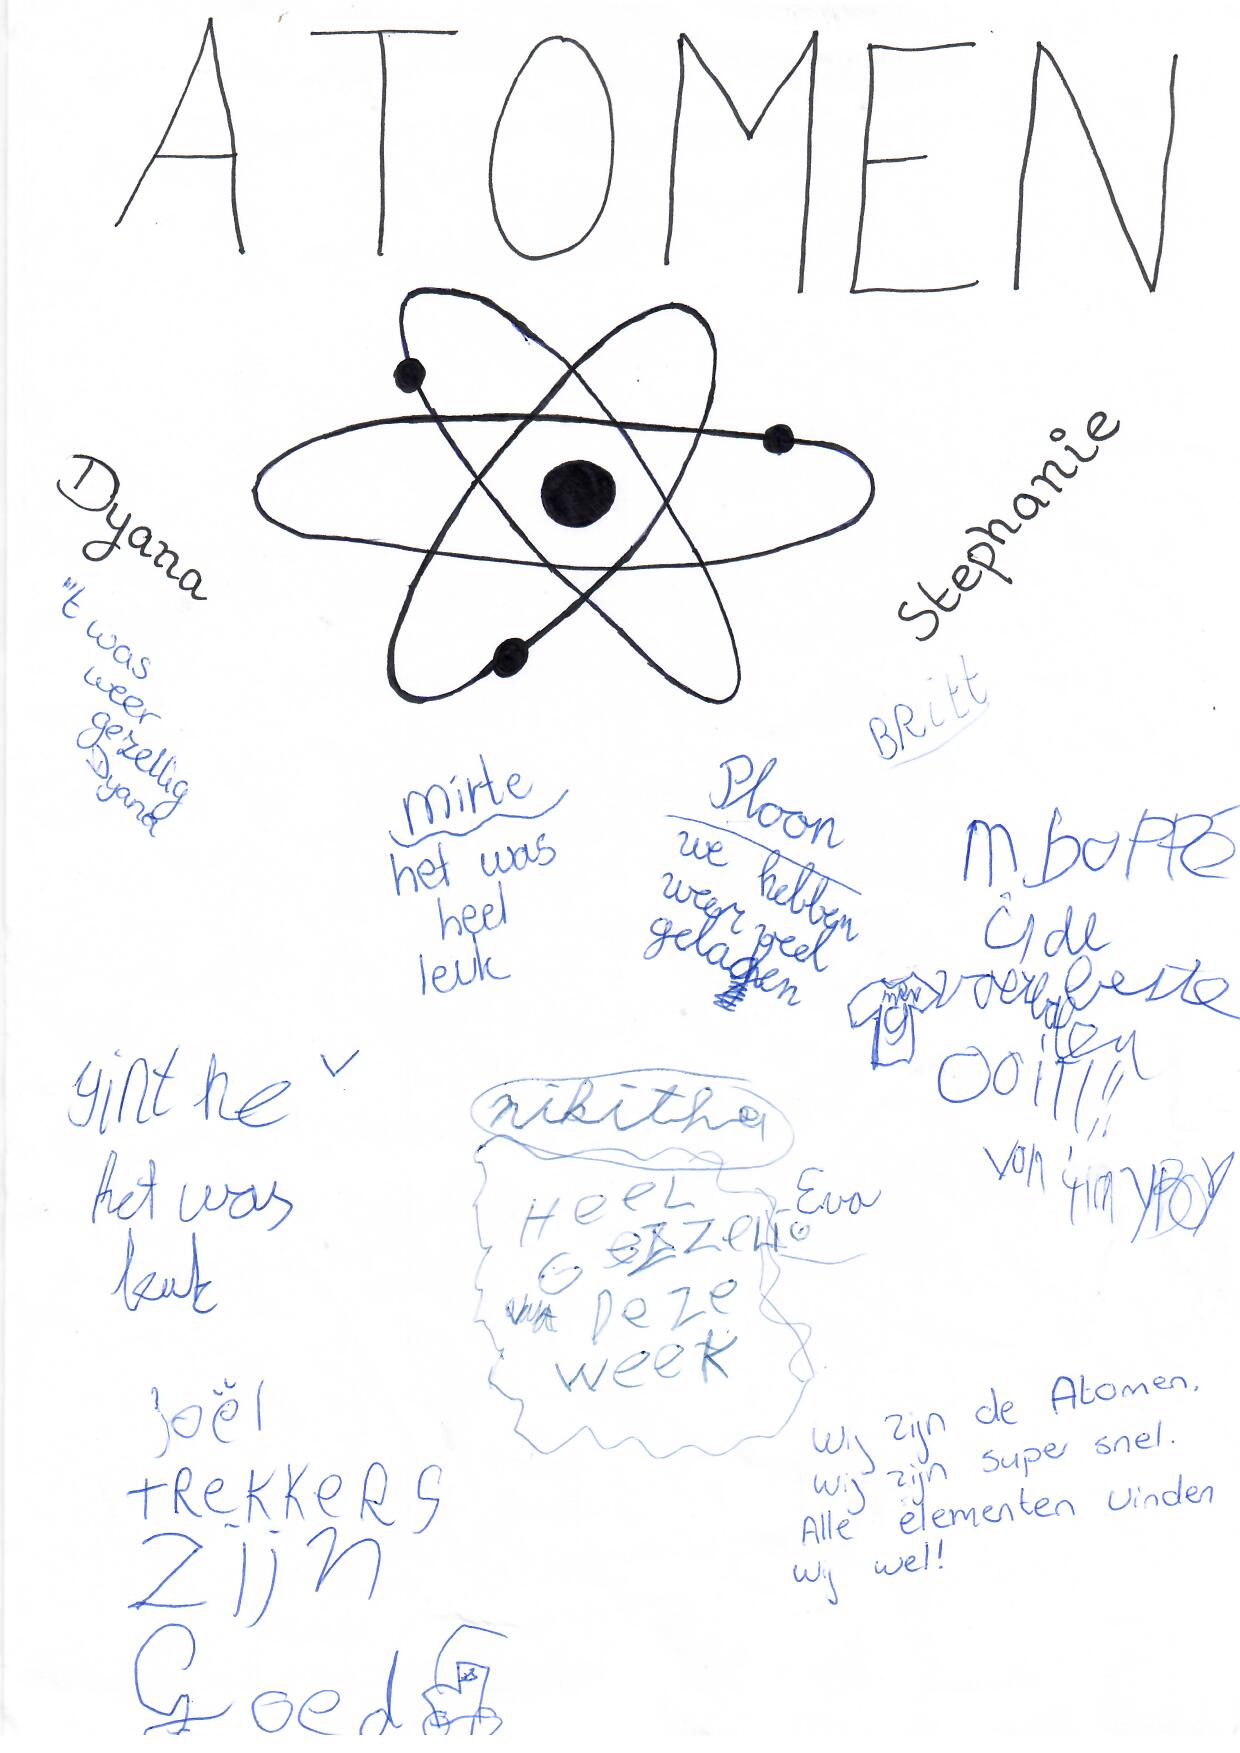 ATOMEN
Dyana
Stephanie
"t was
weer
gezellig
Dyana
BRitt
mirte
het was
heel
leuk
Ploon
we hebben
weer veel
gelachen
de
beste
OOIT!!!
het was
leuk
nikitha
HEEL
GEZZELIG
DeZe
WEEK
Eva
joël
tREKKeRS
zijn
Goed
Wij zijn de Atomen,
wij zijn super snel.
Alle elementen vinden
wij wel!